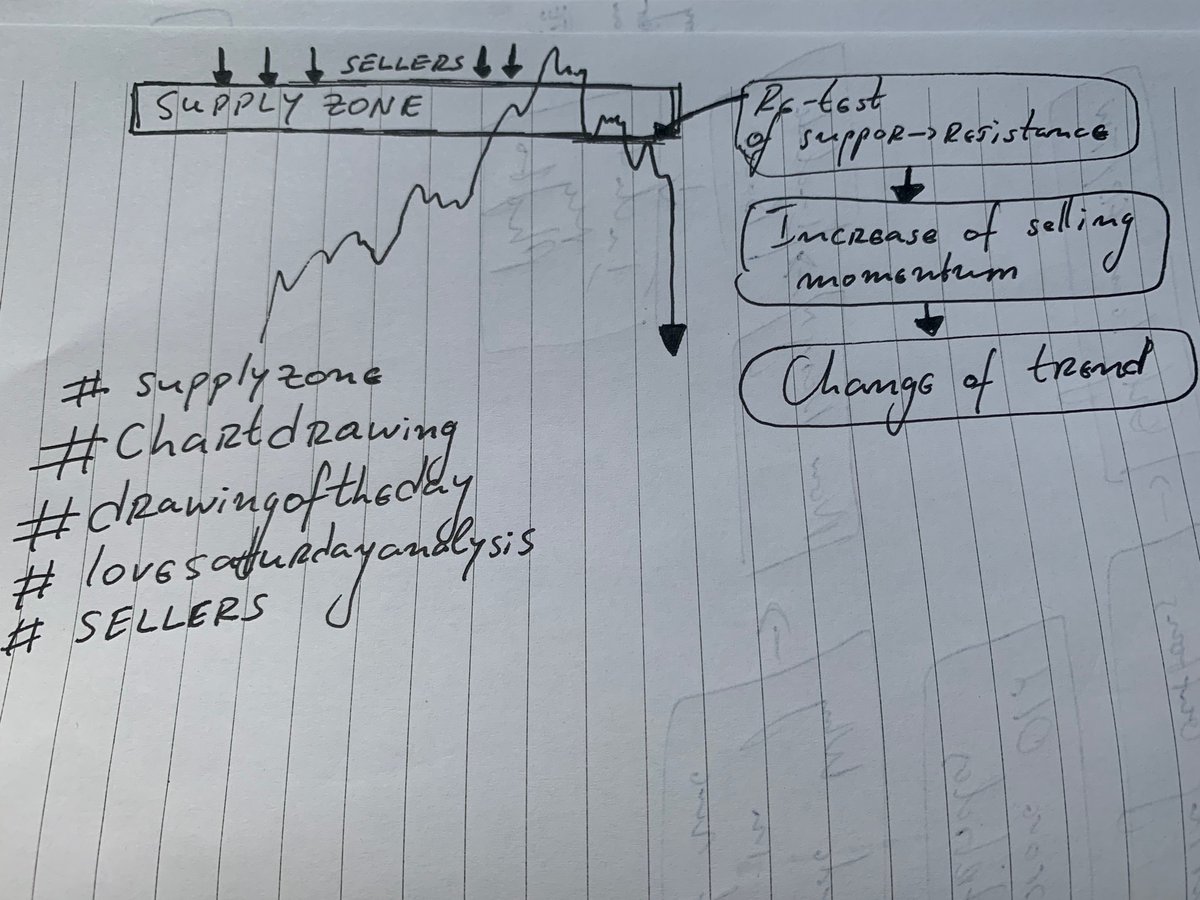 SELLERS
SUPPLY ZONE
Re-test
of suppor->Resistance
Increase of selling
momentum
Change of trend
# supplyzone
# Chartdrawing
# drawingoftheday
# lovesatturdayanalysis
# SELLERS